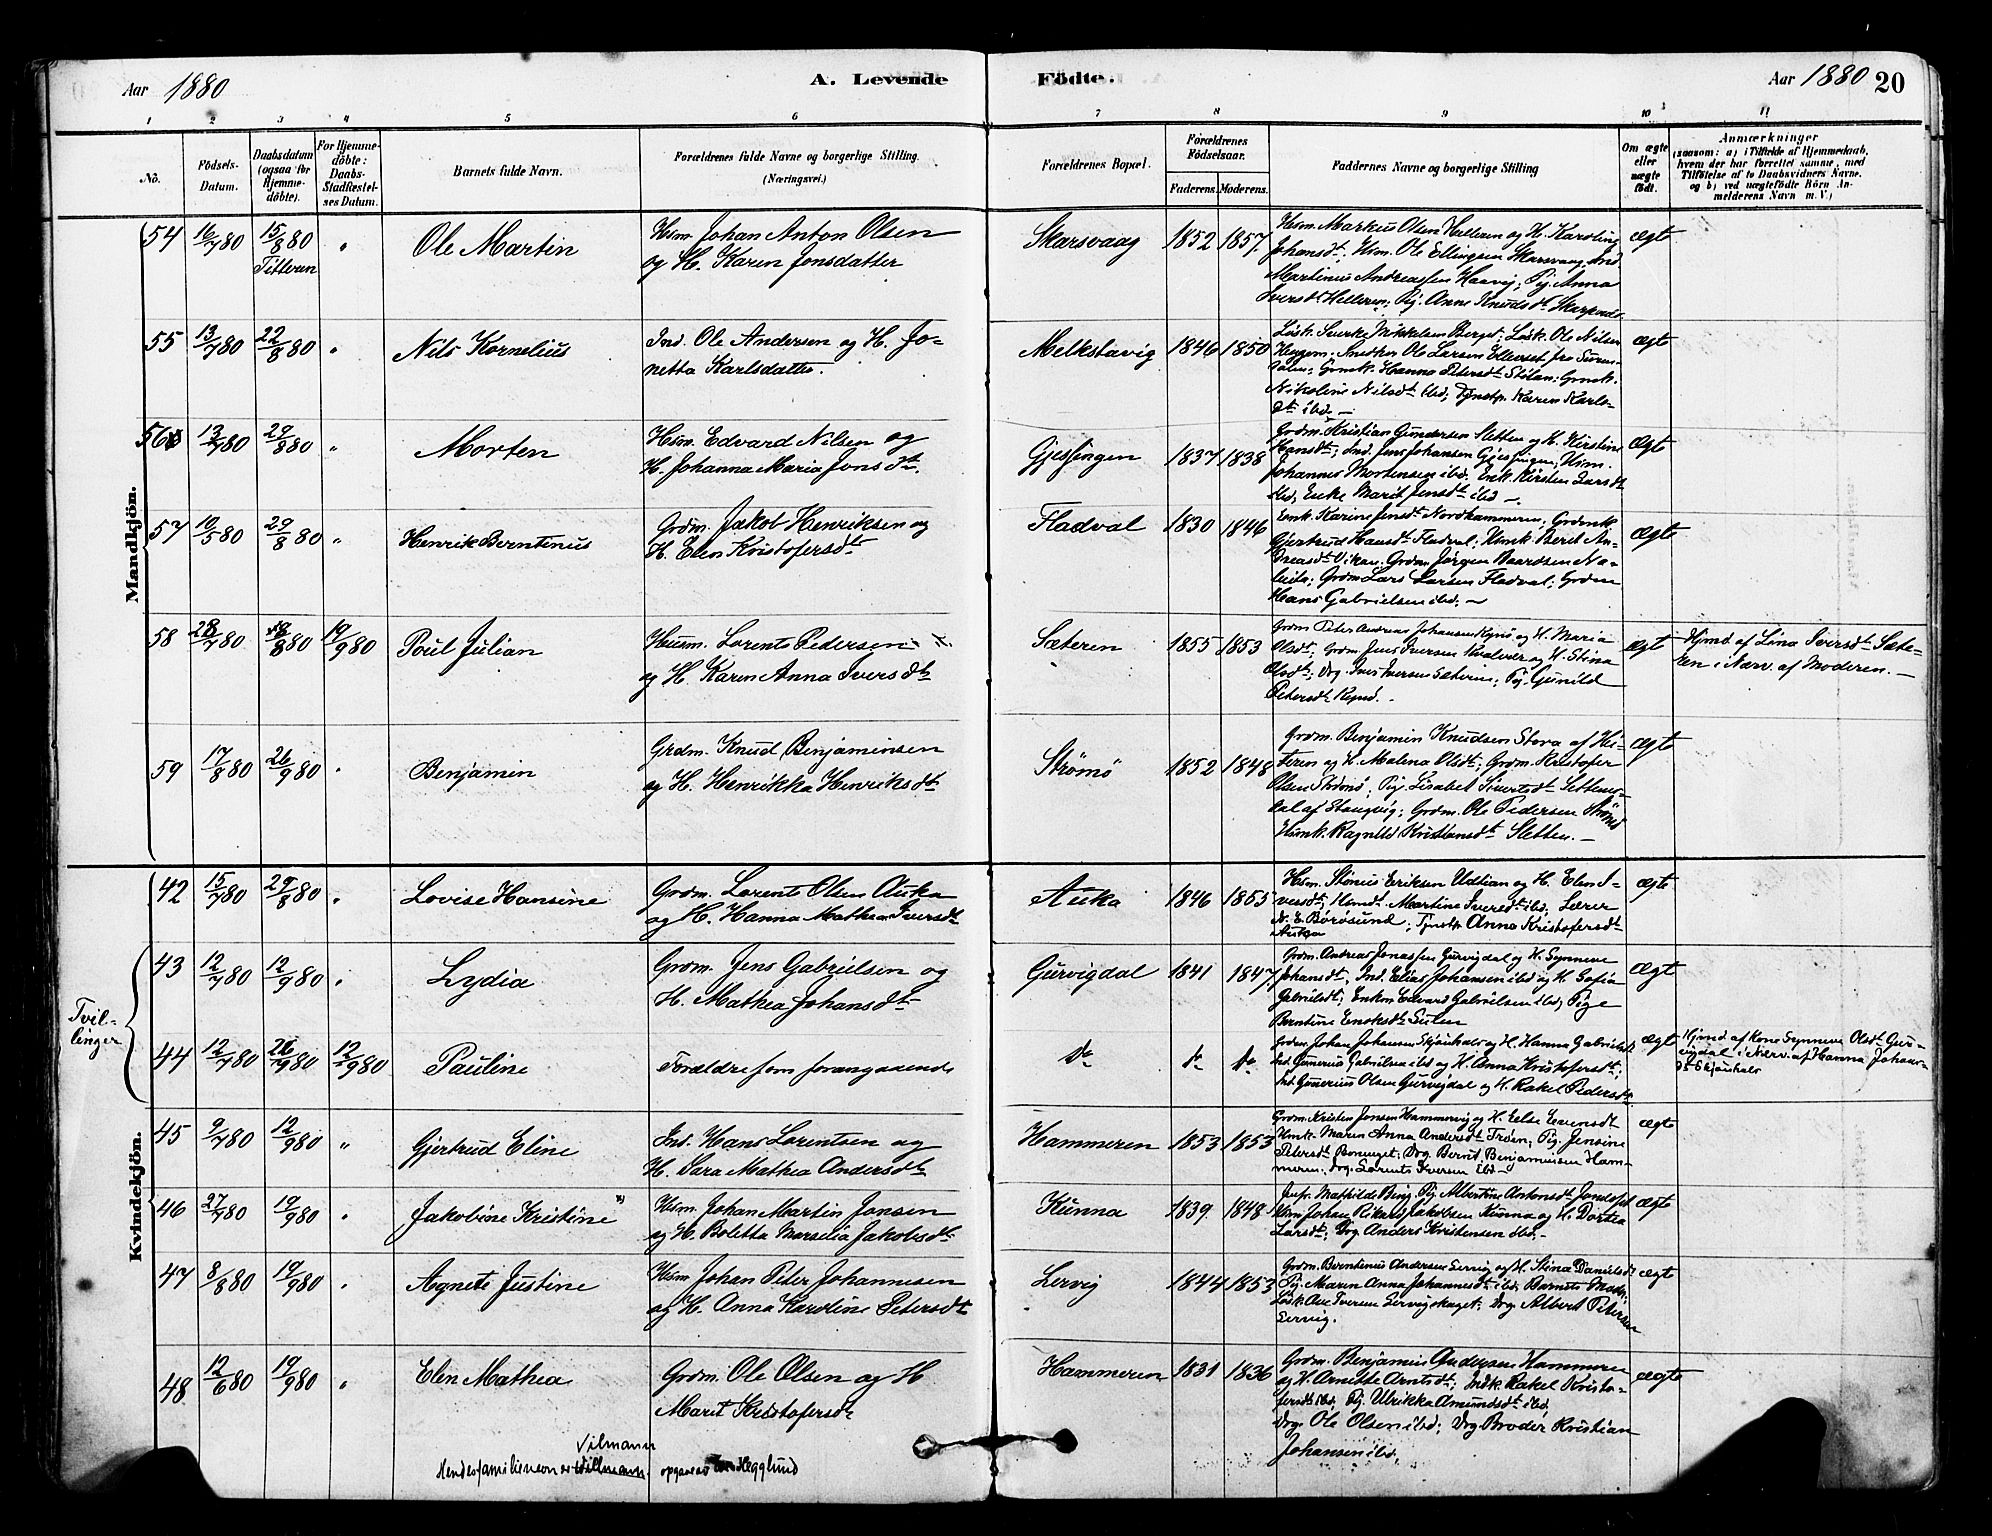 Aar 1880
A. Levende
Födte.
Aar 1880 20
1 2 3 4 5 6 7 8 9 10 11
No.
Födsels-
Datum.
Daabsdatum
(ogsaa for
Hjemme-
döbte).
For Hjemme-
döbte:
Daabs-
Stadfæstel-
ses Datum.
Barnets fulde Navn.
Forældrenes fulde Navne og borgerlige Stilling.
(Næringsvei.)
Forældrenes Bopæl.
Forældrenes
Födselsaar.
Faderens. Moderens.
Faddernes Navne og borgerlige Stilling
Om ægte
eller
uægte
födt.
Anmærkninger
(saasom: a) i Tilfælde af Hjemmedaab,
hvem der har forrettet samme, med
Tilföielse af to Daabsvidners Navne.
og b) ved uægtefödte Börn An-
melderens Navn m. V.)
Mandkjön.
54 16/7 80 15/8 80 " Ole Martin
Titteren
Hsm. Johan Anton Olsen
og H. Karen Jonsdatter
Skarsvaag 1852 1857
Hsm. Markus Olsen Helleren og H. Karoline
Johansdt; Hsm. Ole Ellingsen Skarsvaag; Ind.
Martinus Andreassen Haavig; Pig. Anna
Iversdt Helleren; Pig. Anne Knudsdt
ægte
55 13/7 80 22/8 80 " Nils Kornelius
Ind. Ole Andersen og H. Jo-
netta Karlsdatter.
Melkstavig 1846 1850
Løsk. Sverke Mikkelsen Berget; Løsk. Ole Nilsen
Snedker Ole Larsen
Hanna Petersdt
Nikoline Nilsdt ibd; Tjenstp. Karen Karls-
dt ibd. —
ægte
56 13/7 80 29/8 80 " Morten
Hsm. Edvard Nilsen og
H. Johanna Maria Jonsdt.
Gjessingen 1837 1838
Grdm. Kristian Gundersen Sletten og H. Kirstine
Hansdt; Ind. Jens Johansen Gjessingen; Hsm.
Johannes Mortensen ibd. Enk. Kirsten Larsdt
ibd; Enke Marit Jensdt ibd —
ægte
57 10/5 80 29/8 80 " Henrik Berntinus
Grdm. Jakob Henriksen og
H. Elen Kristofersdt
Fladval 1830 1846
Enk. Karine Jensdt Nordhammeren; Grdmk.
Gjertrud Hansdt Fladval; Hsmk. Berit An-
dreasdt Vikan; Grdm. Jørgen Baardsen
Grdm Lars Larsen Fladval; Grdm
Hans Gabrielsen ibd. —
ægte
58 28/7 80 8/8 80 19/9 80 Poul Julian
Husm. Lorents Pedersen
og H. Karen Anna Iversdt
Sæteren 1855 1853
Grdm. Peter Andreas Johansen og H. Maria
Olsdt; Grdm. Jens Iversen og H. Stina
Olsdt; Ung. Iver Iversen Sæteren; Pig. Gunild
Petersdt
ægt
Hjmd. af Lina Iversdt Sæte-
ren i Nærv. af Moderen. —
59 17/8 80 26/9 80 " Benjamin
Grdm. Knud Benjaminsen
og H. Henrikka Henriksdt
Strømø 1852 1848
Grdm. Benjamin Knudsen Stora af Hit-
teren og H. Malena Olsdt; Grdm. Kristofer
Olsen Strømø; Pig. Lisabet Sivertsdt Settem-
dal af Stangvig; Grdm. Ole Pedersen Strømø
Hsmk. Ragnild Kristiansdt Sletten. —
ægte
Kvindekjön.
42 15/7 80 29/8 80 " Lovise Hansine
Grdm. Lorents Olsen Auka
og H. Hanna Mathea Iversdt
Auka 1846 1853
Hsm. Stenius Eriksen Udtian og H. Elen I-
versdt; Martine Iversdt ibd. Lærer
N. E. Børøsund; Tjenstp. Anna Kristofersdt
Auka
ægte
Tvil-
linger
43 12/7 80 12/9 80 " Lydia
Grdm. Jens Gabrielsen og
H. Mathea Johansdt
Gurvigdal 1841 1847
Grdm. Andreas Jonassen Gurvigdal og H. Synneve
Johansdt; Ind. Elias Johansen ibd og H. Sofia
Gabrielsdt; Enkm Edvard Gabrielsen ibd; Pige
Berntine Enoksdt Sulen
ægt
44 12/7 80 26/9 80 12/9 80 Pauline
Forældre som foregaaende
do do do
Grdm. Johan Johansen Skjauhals og H. Hanna Gabrielsdt
Ind. Gunerius Gabrielsen ibd og H. Anna Kristofersdt;
Ind. Gunerius Olsen Gurvigdal og H. Rakel Pedersdt.
ægt
Hjmd af Kone Synneve Olsdt Gur-
vigdal i Nærv. af Hanna Johans-
dt Skjauhals
45 9/7 80 12/9 80 " Gjertrud Eline
Ind. Hans Lorentsen og
H. Sara Mathea Andersdt
Hammeren 1853 1853
Grdm. Kristen Jonsen Hammervig og H. Else Evensdt
Hsmk. Maren Anna Andersdt Trøen; Pig. Jensine
Petersdt Ung. Bernt Benjaminsen Ham-
meren; Ung. Lorents Iversen ibd —
ægte
46 27/7 80 19/9 80 " Jakobine Kristine
Hsm. Johan Martin Jonsen
og H. Boletta Marselia Jakobsdt
Kunna 1839 1848
Jnfr. Mathilde Bing Pig. Albertine Antonsdt
Hsm. Johan Rikard Jakobsen Kunna og H. Dortea
Larsdt; Ung. Anders Kristensen ibd. —
ægte
47 8/8 80 19/9 80 " Agnete Justine
Hsm Johan Peter Johannesen
og H. Anna Karoline Petersdt
Lervig 1844 1853
Grdm. Berntinus Andersen Lervig og H. Stina Danielsdt
Pig. Maren Anna Johannesdt ibd. Barnets Moder;
Løsk. Ove Iversen Lervigskaget; Ung. Albert Petersen
Lervig.
ægte
48 12/6 80 19/9 80 " Elen Mathea
Grdm. Ole Olsen og H
Marit Kristofersdt
Hammeren 1831 1836
Grdm. Benjamin Andersen Hammeren
og H. Arnette Arntsdt; Indk. Rakel Kristo-
fersdt ibd; Pig. Ulrikka Amundsdt ibd.
Ung. Ole Olsen ibd; Ung. Broder Kristian
Johansen ibd.
ægte
Vilmann
Hendes familienavn er Willmann. opgaves Hegglund